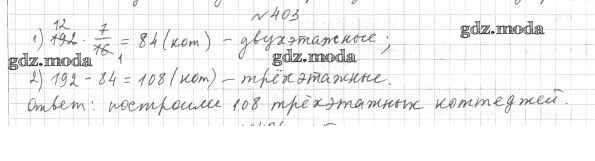 №403
1) 192 · 7/16 = 84 (кот) - двухэтажные;
12
1
gdz.moda
gdz.moda
gdz.moda
2) 192 - 84 = 108 (кот) - трёхэтажные.
Ответ: построили 108 трёхэтажных коттеджей.